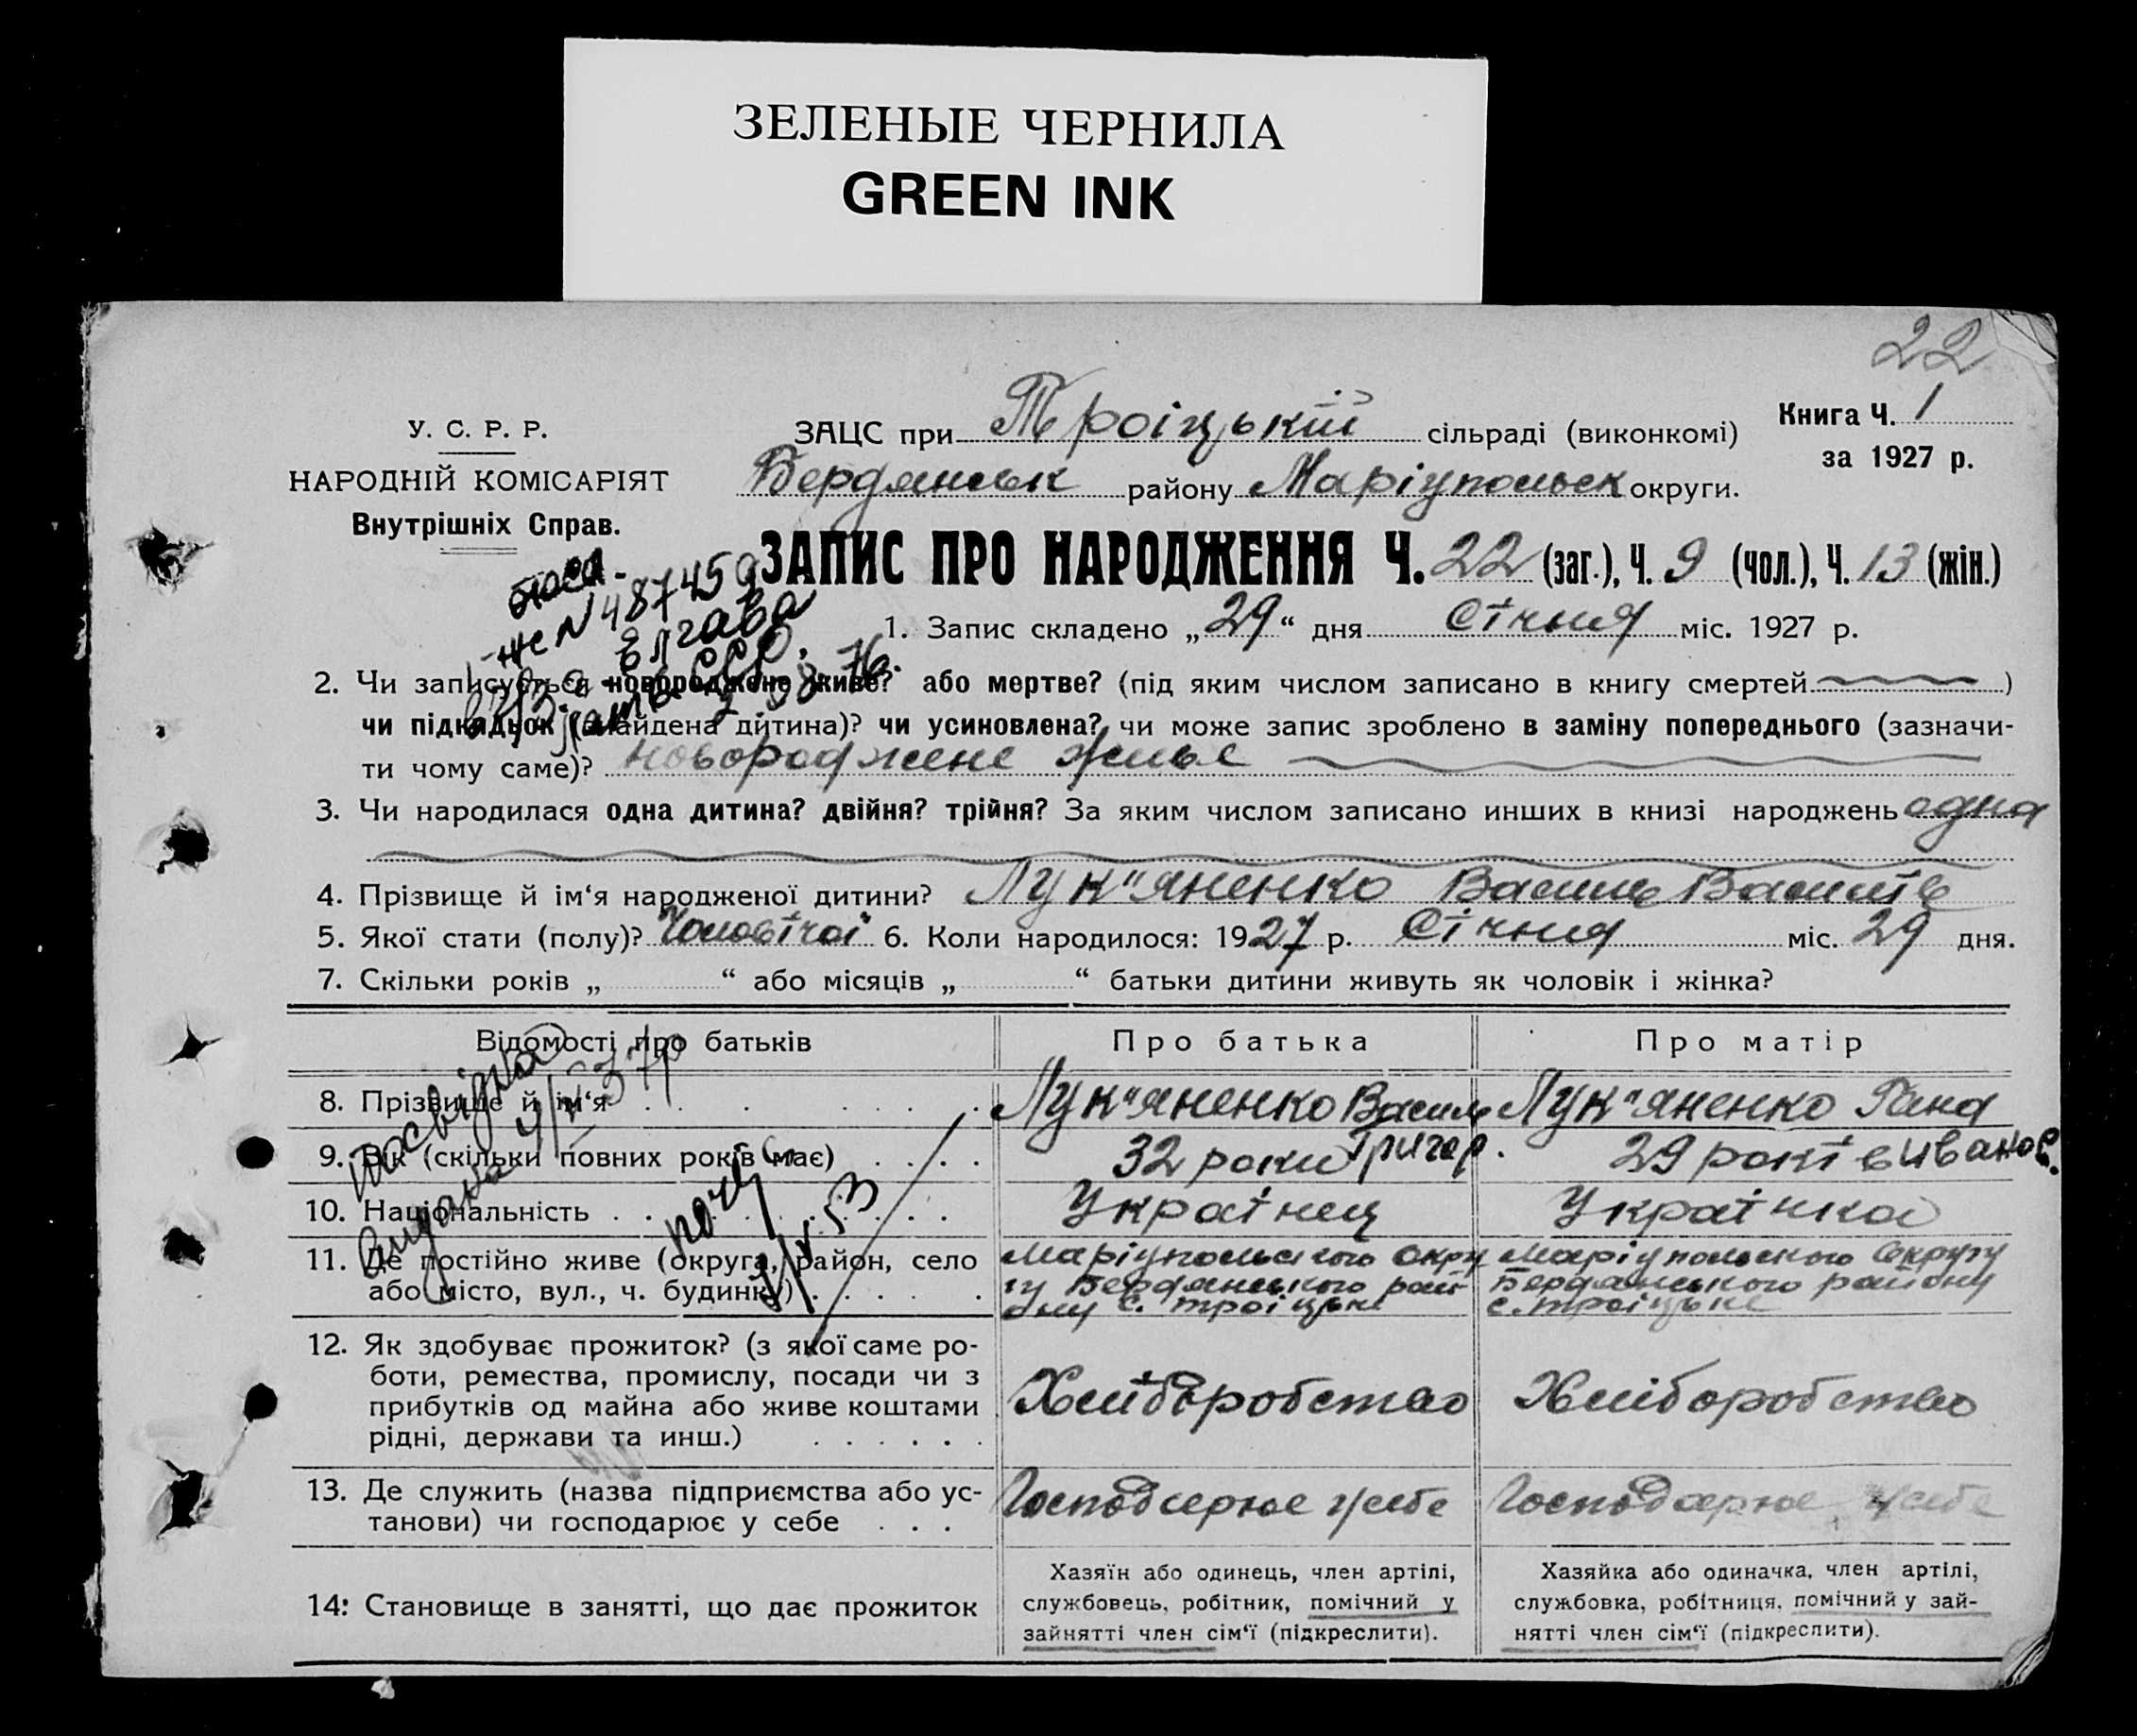 ЗЕЛЕНЫЕ ЧЕРНИЛА
GREEN INK
22
У. С. Р. Р.
НАРОДНІЙ КОМІСАРІЯТ
Внутрішніх Справ.
ЗАЦС при Троіцькій сільраді (виконкомі)
Книга Ч. 1
за 1927 р.
Бердянськ району Маріупольск округи.
ЗАПИС ПРО НАРОДЖЕННЯ Ч. 22 (заг.), Ч. 9 (чол.), Ч. 13 (жін.)
N 487459
1. Запис складено „29“ дня Січня міс. 1927 р.
2. Чи записується новороджене живе? або мертве? (під яким числом записано в книгу смертей)
чи підкидьок (знайдена дитина)? чи усиновлена? чи може запис зроблено в заміну попереднього (зазначи-
ти чому саме)? новороджене живе
3. Чи народилася одна дитина? двійня? трійня? За яким числом записано инших в книзі народжень одна
4. Прізвище й ім‘я народженої дитини? Лук"яненко Василь Василів
5. Якої стати (полу)? Чоловічої 6. Коли народилося: 1927 р. Січня міс. 29 дня.
7. Скільки років „ “ або місяців „ “ батьки дитини живуть як чоловік і жінка?
Відомості про батьків
Про батька
Про матір
8. Прізвище й ім‘я
Лук"яненко Василь
Григор.
Лук"яненко Ганна
Иванов.
9. Вік (скільки повних років має)
32 роки
29 років
10. Національність
Украінец
Украінка
11. Де постійно живе (округа, район, село
або місто, вул., ч. будинку)
Маріупольского Окру
гу Бердянського рай
ону с. Троіцьке
Маріупольского Округу
Бердянського району
с. Троіцьке
12. Як здобуває прожиток? (з якої саме ро-
боти, ремества, промислу, посади чи з
прибутків од майна або живе коштами
рідні, держави та инш.)
Хліборобство
Хліборобство
13. Де служить (назва підприємства або ус-
танови) чи господарює у себе
Господарює у себе
Господарює у себе
14: Становище в занятті, що дає прожиток
Хазяїн або одинець, член артілі,
службовець, робітник, помічний у
зайнятті член сім‘ї (підкреслити).
Хазяйка або одиначка, член артілі,
службовка, робітниця, помічний у зай-
нятті член сім‘ї (підкреслити).